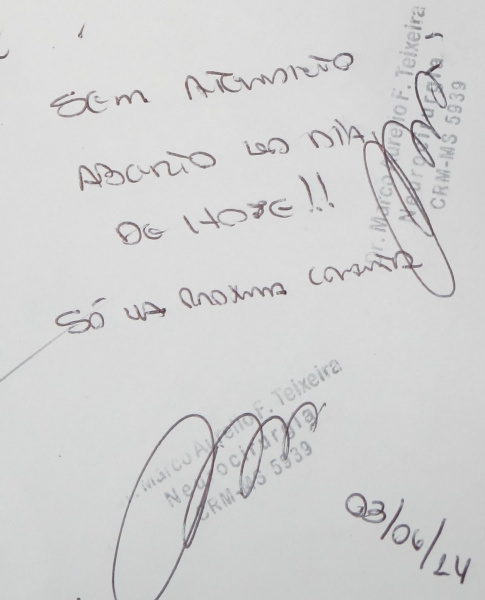 SEM
ABONO NO DIA
DE HOJE!!
SÓ NA PROXIMA CONSULTA
Dr. Marco Aurelio F. Teixeira
Neurocirurgia
CRM-MS 5939
Dr. Marco Aurelio F. Teixeira
Neurocirurgia
CRM-MS 5939
03/06/24